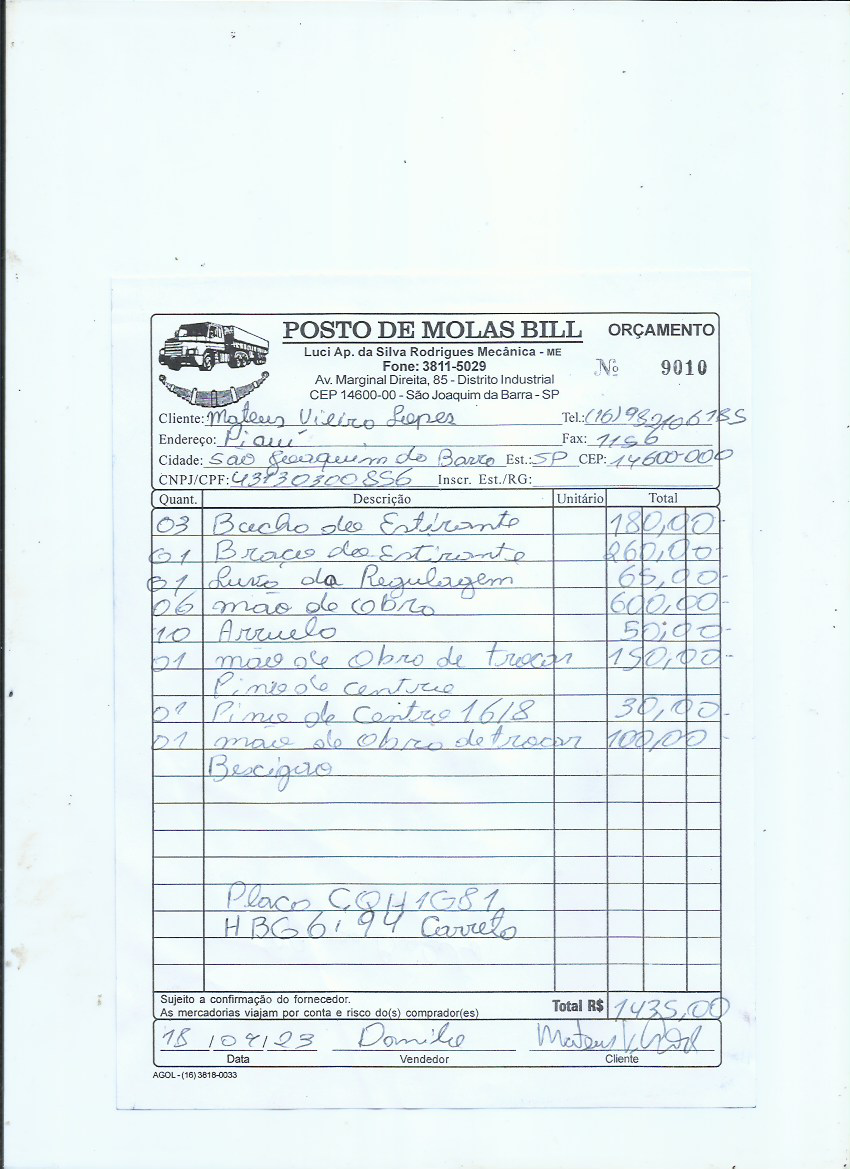 POSTO DE MOLAS BILL ORÇAMENTO
Luci Ap. da Silva Rodrigues Mecânica - ME
Fone: 3811-5029
Nº 9010
Av. Marginal Direita, 85 - Distrito Industrial
CEP 14600-00 - São Joaquim da Barra - SP
Cliente: Mateus Vieira Lopes Tel.: (16)
Endereço: Piauí Fax: 1156
Cidade: São Joaquim do Barro Est.: SP CEP: 14600-000
CNPJ/CPF: Inscr. Est./RG:
Quant. Descrição Unitário Total
03 Bucho do Estirante 180,00-
01 Braço do Estirante 260,00-
01 Luva da Regulagem 65,00-
06 mão de obro 600,00-
10 Arruelo 50,00-
01 mão de Obro de trocar 150,00-
Pino de centro
01 Pino de Centro 16/8 30,00-
01 mão de Obro de trocar 100,00-
Bescigão
Placos CQH1G81
HBG6194 Carreto
Sujeito a confirmação do fornecedor.
As mercadorias viajam por conta e risco do(s) comprador(es) Total R$ 1435,00
18/04/23 Danilo Mateus
Data Vendedor Cliente
AGOL - (16) 3818-0033